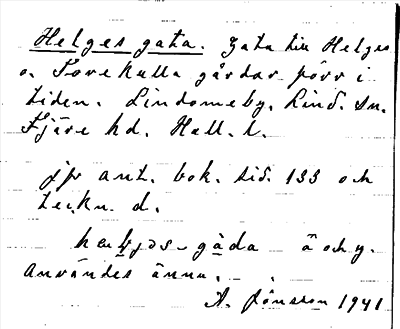 Helges gata. Gata till Helges
o. Torekulla gårdar förr i
tiden. Lindomeby, Lind. sn.
Fjäre hd. Hall. l.
jfr ant. bok. sid. 133 och
teckn. d.
gåda ä och y.
Användes ännu.
A. Jönsson 1941